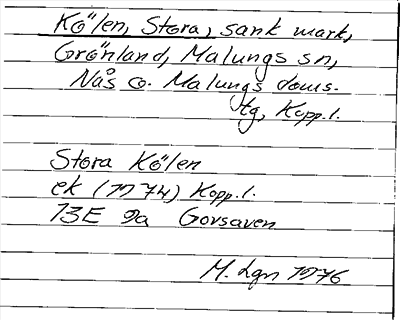 Kölen, Stora, sank mark,
Grönland, Malungs sn,
Nås o. Malungs doms.
tg, Kopp.l.
Stora Kölen
ek (1974) Kopp.l.
13E 9a Gorsaven
M. Lgn 1976